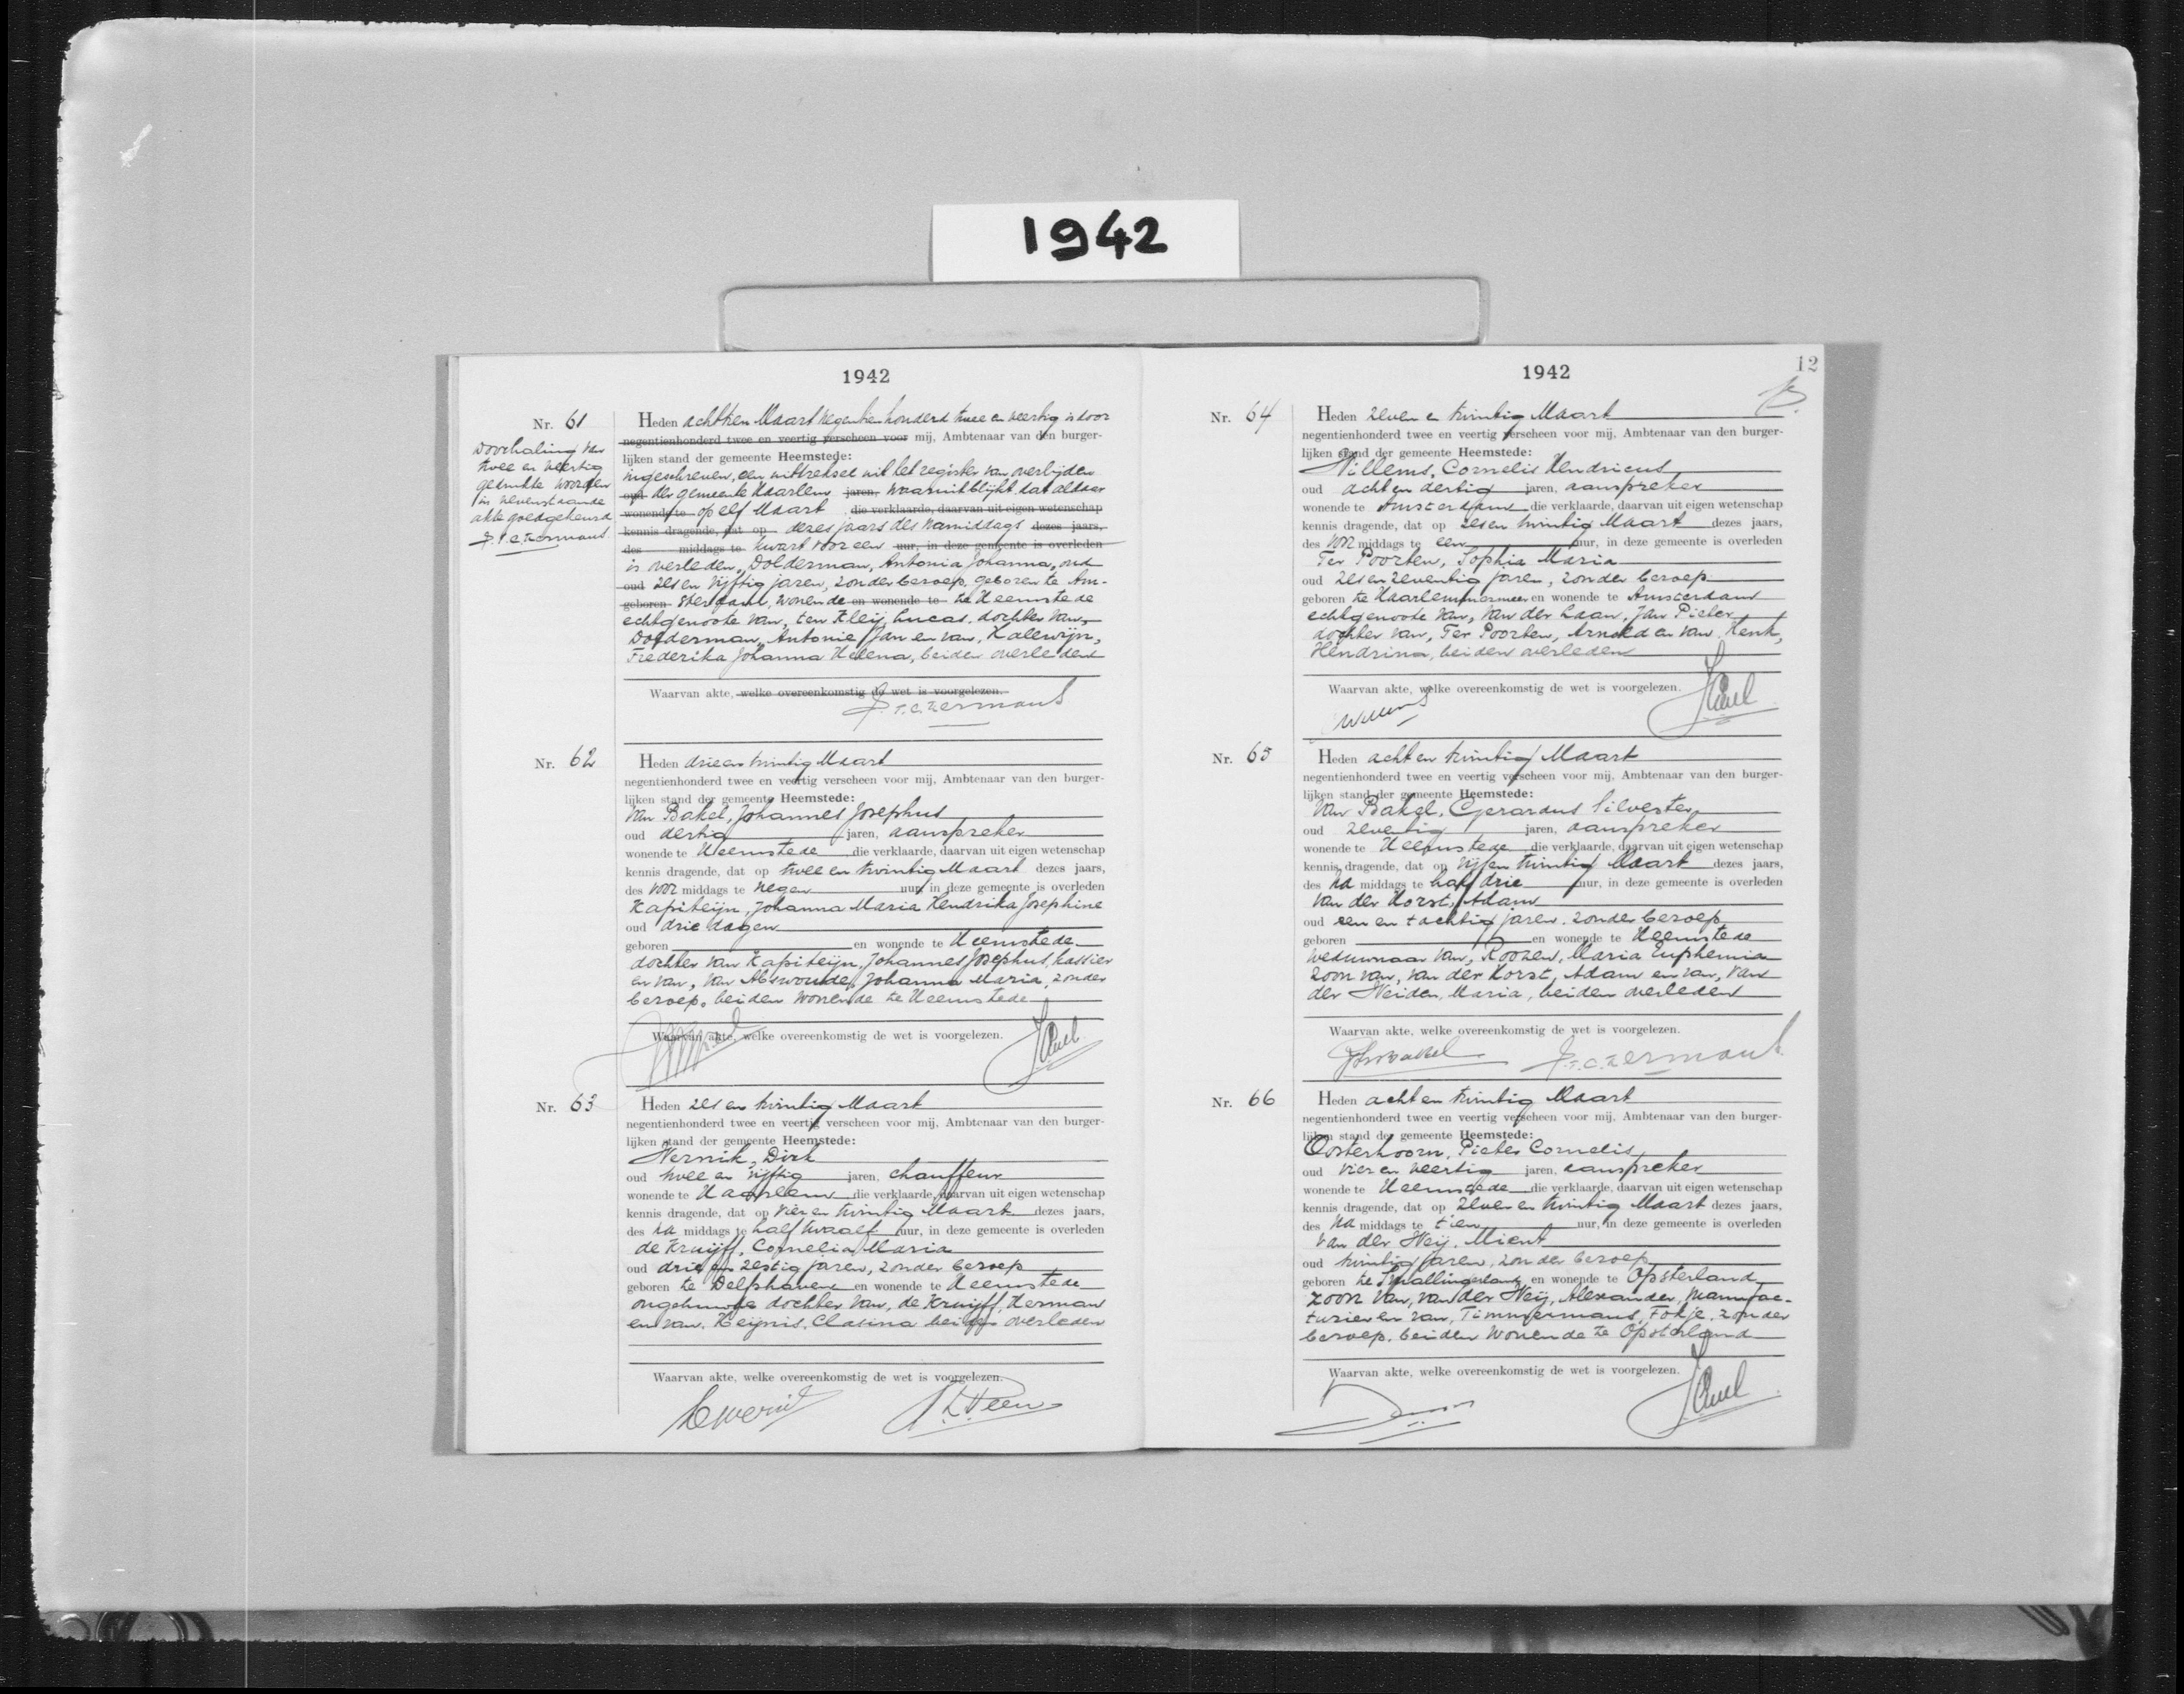 1942
1942
Nr. 61
Doorhaling van
twee en veertig
gedrukte woorden
in nevenstaande
akte goedgekeurd
Heden achttien Maart negentienhonderd twee en veertig is door
negentienhonderd twee en veertig verscheen voor mij, Ambtenaar van den burger-
lijken stand der gemeente Heemstede:
ingeschreven, een uittreksel uit het register van overlijden
oud der gemeente Haarlem jaren, waaruit blijkt dat aldaar
wonende te op elf Maart die verklaarde, daarvan uit eigen wetenschap
kennis dragende, dat op dezes jaars des namiddags dezes jaars,
des middags te kwart voor een uur, in deze gemeente is overleden
is overleden, Dolderman, Antonia Johanna, oud
oud zes en vijftig jaren, zonder beroep, geboren te Am-
geboren sterdam, wonende en wonende te te Heemstede
echtgenoote van, ten Kleij, Lucas, dochter van,
Dolderman, Antonie Jan en van, Kallewijn,
Frederika Johanna Helena, beiden overleden
Waarvan akte, welke overeenkomstig de wet is voorgelezen.
Nr. 62
Heden drie en twintig Maart
negentienhonderd twee en veertig verscheen voor mij, Ambtenaar van den burger-
lijken stand der gemeente Heemstede:
van Bakel, Johannes Josephus
oud dertig jaren, aanspreker
wonende te Heemstede die verklaarde, daarvan uit eigen wetenschap
kennis dragende, dat op twee en twintig Maart dezes jaars,
des voor middags te negen uur, in deze gemeente is overleden
Kapiteijn, Johanna Maria Hendrika Josephine
oud drie dagen
geboren en wonende te Heemstede
dochter van Kapiteijn, Johannes Josephus, kassier
en van, van Abswoude, Johanna Maria, zonder
beroep, beiden wonende te Heemstede
Waarvan akte, welke overeenkomstig de wet is voorgelezen.
Nr. 63
Heden zes en twintig Maart
negentienhonderd twee en veertig verscheen voor mij, Ambtenaar van den burger-
lijken stand der gemeente Heemstede:
Wernik, Dirk
oud twee en vijftig jaren, chauffeur
wonende te Haarlem die verklaarde, daarvan uit eigen wetenschap
kennis dragende, dat op vier en twintig Maart dezes jaars,
des na middags te half twaalf uur, in deze gemeente is overleden
de Kruijff, Cornelia Maria
oud drie en zestig jaren, zonder beroep
geboren te Delfshaven en wonende te Heemstede
ongehuwde dochter van, de Kruijff, Herman
en van, Heijnis, Clasina beiden overleden
Waarvan akte, welke overeenkomstig de wet is voorgelezen.
1942
12
Nr. 64
Heden zeven en twintig Maart
negentienhonderd twee en veertig verscheen voor mij, Ambtenaar van den burger-
lijken stand der gemeente Heemstede:
Willems, Cornelis Hendricus
oud acht en dertig jaren, aanspreker
wonende te Amsterdam die verklaarde, daarvan uit eigen wetenschap
kennis dragende, dat op zes en twintig Maart dezes jaars,
des voor middags te een uur, in deze gemeente is overleden
Ter Poorten, Sophia Maria
oud zes en zeventig jaren, zonder beroep
geboren te Haarlemmermeer en wonende te Amsterdam
echtgenoote van, van der Laan, Jan Pieter
dochter van, Ter Poorten, Arnold en van Henk,
Hendrina, beiden overleden
Waarvan akte, welke overeenkomstig de wet is voorgelezen.
Nr. 65
Heden acht en twintig Maart
negentienhonderd twee en veertig verscheen voor mij, Ambtenaar van den burger-
lijken stand der gemeente Heemstede:
van Bakel, Gerardus Silvester
oud zeventig jaren, aanspreker
wonende te Heemstede die verklaarde, daarvan uit eigen wetenschap
kennis dragende, dat op vijf en twintig Maart dezes jaars,
des na middags te half drie uur, in deze gemeente is overleden
van der Horst, Adam
oud een en tachtig jaren, zonder beroep
geboren en wonende te Heemstede
weduwnaar van, Roozen, Maria Euphemia
zoon van, van der Horst, Adam en van, van
der Weiden, Maria, beiden overleden
Waarvan akte, welke overeenkomstig de wet is voorgelezen.
Nr. 66
Heden acht en twintig Maart
negentienhonderd twee en veertig verscheen voor mij, Ambtenaar van den burger-
lijken stand der gemeente Heemstede:
Oosterhoorn, Pieter Cornelis
oud vier en veertig jaren, aanspreker
wonende te Heemstede die verklaarde, daarvan uit eigen wetenschap
kennis dragende, dat op zeven en twintig Maart dezes jaars,
des na middags te tien uur, in deze gemeente is overleden
van der Weij, Mient
oud twintig jaren, zonder beroep
geboren te Smallingerland en wonende te Opsterland
zoon van, van der Weij, Alexander, manufac-
turier en van, Timmermans, Fokje, zonder
beroep, beiden wonende te Opsterland
Waarvan akte, welke overeenkomstig de wet is voorgelezen.